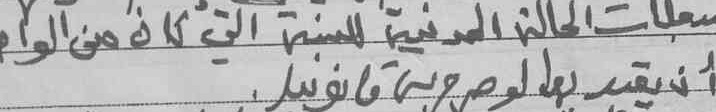 سجلات الحالة المدنية للسنة التي كان من الواجب
أن يقيد بها لو صرح به قانونيا.